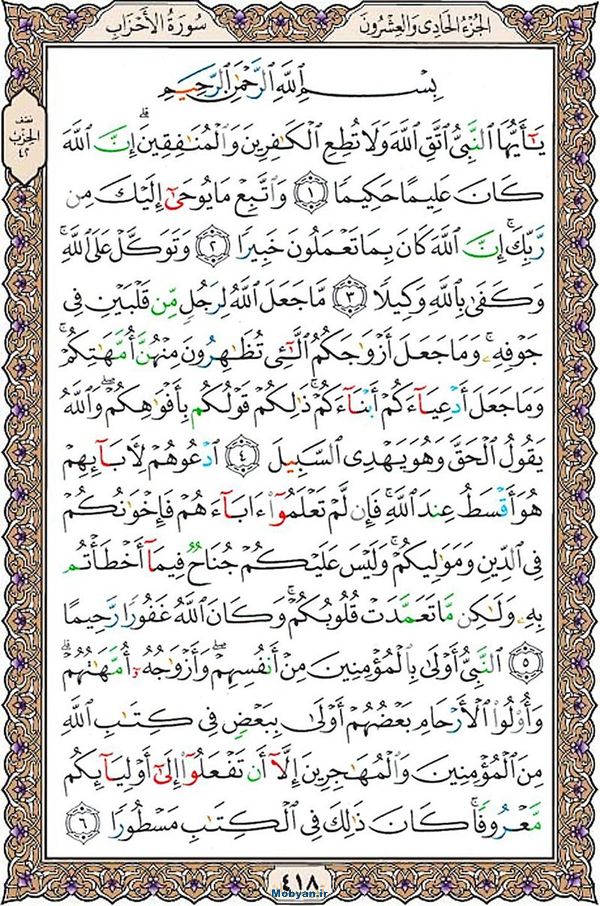 سُورَةُ الأَحْزَابِ
الجُزْءُ الحَادِى وَالعِشْرُونَ
نصف
الحزب
٤٢
بِسْمِ اللَّهِ الرَّحْمَٰنِ الرَّحِيمِ
يَٰٓأَيُّهَا ٱلنَّبِيُّ ٱتَّقِ ٱللَّهَ وَلَا تُطِعِ ٱلْكَٰفِرِينَ وَٱلْمُنَٰفِقِينَ ۗ إِنَّ ٱللَّهَ
كَانَ عَلِيمًا حَكِيمًا ١ وَٱتَّبِعْ مَا يُوحَىٰٓ إِلَيْكَ مِن
رَّبِّكَ ۚ إِنَّ ٱللَّهَ كَانَ بِمَا تَعْمَلُونَ خَبِيرًا ٢ وَتَوَكَّلْ عَلَى ٱللَّهِ ۚ
وَكَفَىٰ بِٱللَّهِ وَكِيلًا ٣ مَّا جَعَلَ ٱللَّهُ لِرَجُلٍ مِّن قَلْبَيْنِ فِى
جَوْفِهِۦ ۚ وَمَا جَعَلَ أَزْوَٰجَكُمُ ٱلَّٰٓـِٔى تُظَٰهِرُونَ مِنْهُنَّ أُمَّهَٰتِكُمْ ۚ
وَمَا جَعَلَ أَدْعِيَآءَكُمْ أَبْنَآءَكُمْ ۚ ذَٰلِكُمْ قَوْلُكُم بِأَفْوَٰهِكُمْ ۖ وَٱللَّهُ
يَقُولُ ٱلْحَقَّ وَهُوَ يَهْدِى ٱلسَّبِيلَ ٤ ٱدْعُوهُمْ لِأَبَآئِهِمْ
هُوَ أَقْسَطُ عِندَ ٱللَّهِ ۚ فَإِن لَّمْ تَعْلَمُوٓا۟ ءَابَآءَهُمْ فَإِخْوَٰنُكُمْ
فِى ٱلدِّينِ وَمَوَٰلِيكُمْ ۚ وَلَيْسَ عَلَيْكُمْ جُنَاحٌ فِيمَآ أَخْطَأْتُم
بِهِۦ وَلَٰكِن مَّا تَعَمَّدَتْ قُلُوبُكُمْ ۚ وَكَانَ ٱللَّهُ غَفُورًا رَّحِيمًا
٥ ٱلنَّبِيُّ أَوْلَىٰ بِٱلْمُؤْمِنِينَ مِنْ أَنفُسِهِمْ ۖ وَأَزْوَٰجُهُۥٓ أُمَّهَٰتُهُمْ ۗ
وَأُو۟لُوا۟ ٱلْأَرْحَامِ بَعْضُهُمْ أَوْلَىٰ بِبَعْضٍ فِى كِتَٰبِ ٱللَّهِ
مِنَ ٱلْمُؤْمِنِينَ وَٱلْمُهَٰجِرِينَ إِلَّآ أَن تَفْعَلُوٓا۟ إِلَىٰٓ أَوْلِيَآئِكُم
مَّعْرُوفًا ۚ كَانَ ذَٰلِكَ فِى ٱلْكِتَٰبِ مَسْطُورًا ٦
٤١٨
Mobyan.ir